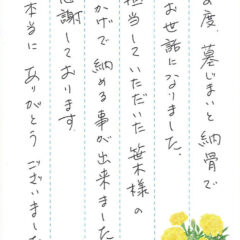 の度、墓じまいと納骨で
お世話になりました。
担当していただいた笹木様の
かげで納める事が出来ました
感謝しております。
本当にありがとうございました